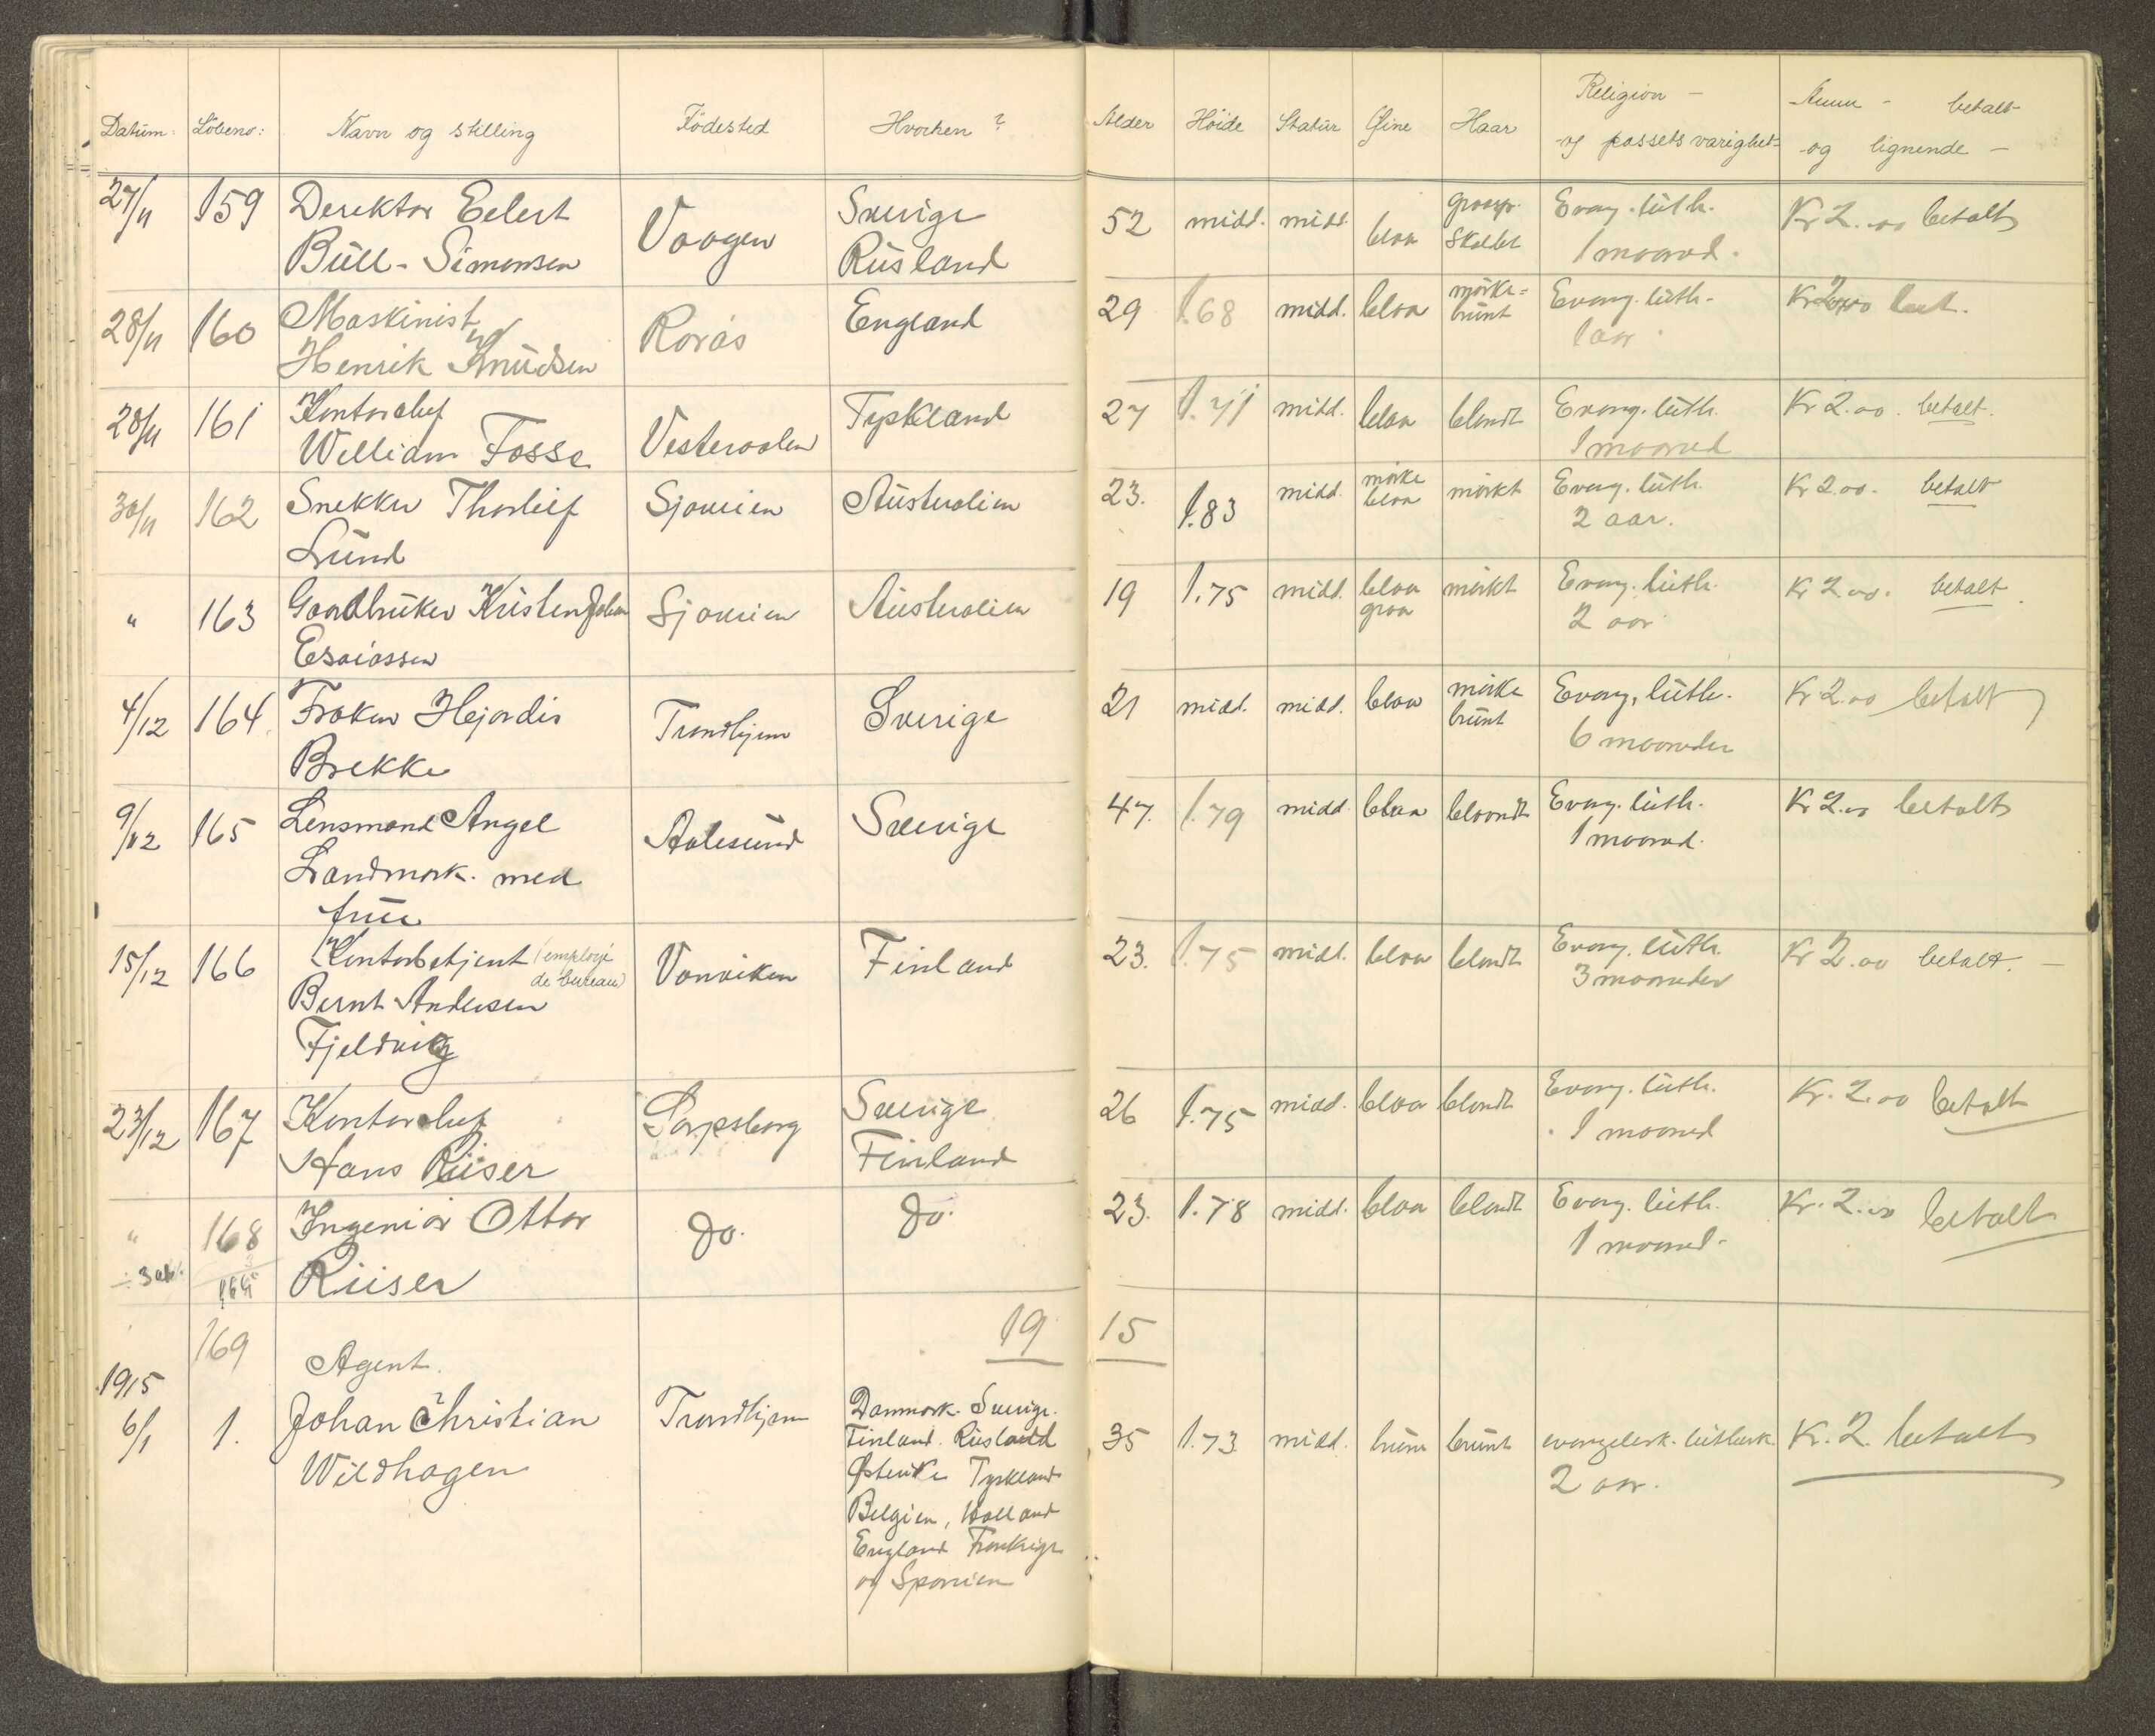 Datum: Löbeno: Navn og stilling Födested Hvorhen ? Alder Höide Statür Öine Haar Religion - og passets varighet- Anm - betalt og lignende -
27/11 159 Derektör Eelert Büll-Simonsen Vaagen Sverige Rüsland 52 midd. midd. blaa skaldet Evang. lüth. 1 maaned. Kr 2.00 betalt
28/11 160 Maskinist Henrik Knüdsen Rorås England 29 1.68 midd. blaa mörke= brünt Evang. lüth. 1 aar Kr 2.00 bet.
28/11 161 Kontorchef William Fosse Vesteraalen Tyskland 27 1.71 midd. blaa blondt Evang. lüth. 1 maaned Kr 2.00. betalt.
30/11 162 Snekker Thorleif Lünd Sjövien Aüstralien 23. 1.83 midd. mörke blaa mörkt Evang. lüth. 2 aar. Kr 2.00. betalt
" 163 Gaardbrüker Kristen Johan Esaiassen Sjövien Aüstralien 19 1.75 midd. blaa graa mörkt Evang. lüth. 2 aar Kr 2.00. betalt
4/12 164. Fröken Hejördis Brekke Trondhjem Sverige 21 midd. midd. blaa mörke brünt Evang. lüth. 6 maaneder Kr 2.00 betalt
9/12 165 Lensmand Angel Landmark. med früe Aalesünd Sverige 47. 1.79 midd. blaa bloondt Evang. lüth. 1 maaned. Kr 2.00 betalt
15/12 166 Kontorbetjent (employé de bureau) Bernt Andersen Fjeldvig Vanviken Finland 23. 1.75 midd. blaa blondt Evang. lüth. 3 maaneder Kr 2.00 betalt. -
23/12 167 Kontorchef Hans Riiser Sarpsborg Sverige Finland 26 1.75 midd. blaa blondt Evang. lüth. 1 maaned Kr. 2.00 betalt
" 168 Ingeniör Ottar Riiser do. do. 23. 1.78 midd. blaa blondt Evang. lüth. 1 maaned. Kr. 2.00 betalt
169 19 15
1915
6/1 1. Agent. Johan Christian Wildhagen Trondhjem Danmark. Sverige. Finland. Rüsland Østerike Tyskland Belgien, Holland England Frankrige og Spanien 35 1.73 midd. brüne brünt evangelisk. lüthersk 2 aar. K. 2. betalt